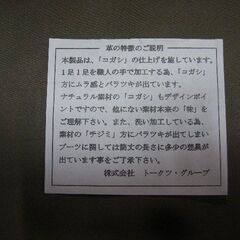 革の特徴のご説明
本製品は、「コガシ」の仕上げを施しています。
1足1足を職人の手で加工する為、「コガシ」
方にムラ感とバラツキが出てしまいます。
ナチュラル素材の「コガシ」もデザインポイ
ントですので、他にない素材本来の「味」を
ご理解下さい。また、洗い加工している為、
素材の「チジミ」方にバラツキが出てしまい
ブーツに関しては筒丈の長さに多少の差異が
出ています事をご了承下さい。
株式会社 トークツ・グループ